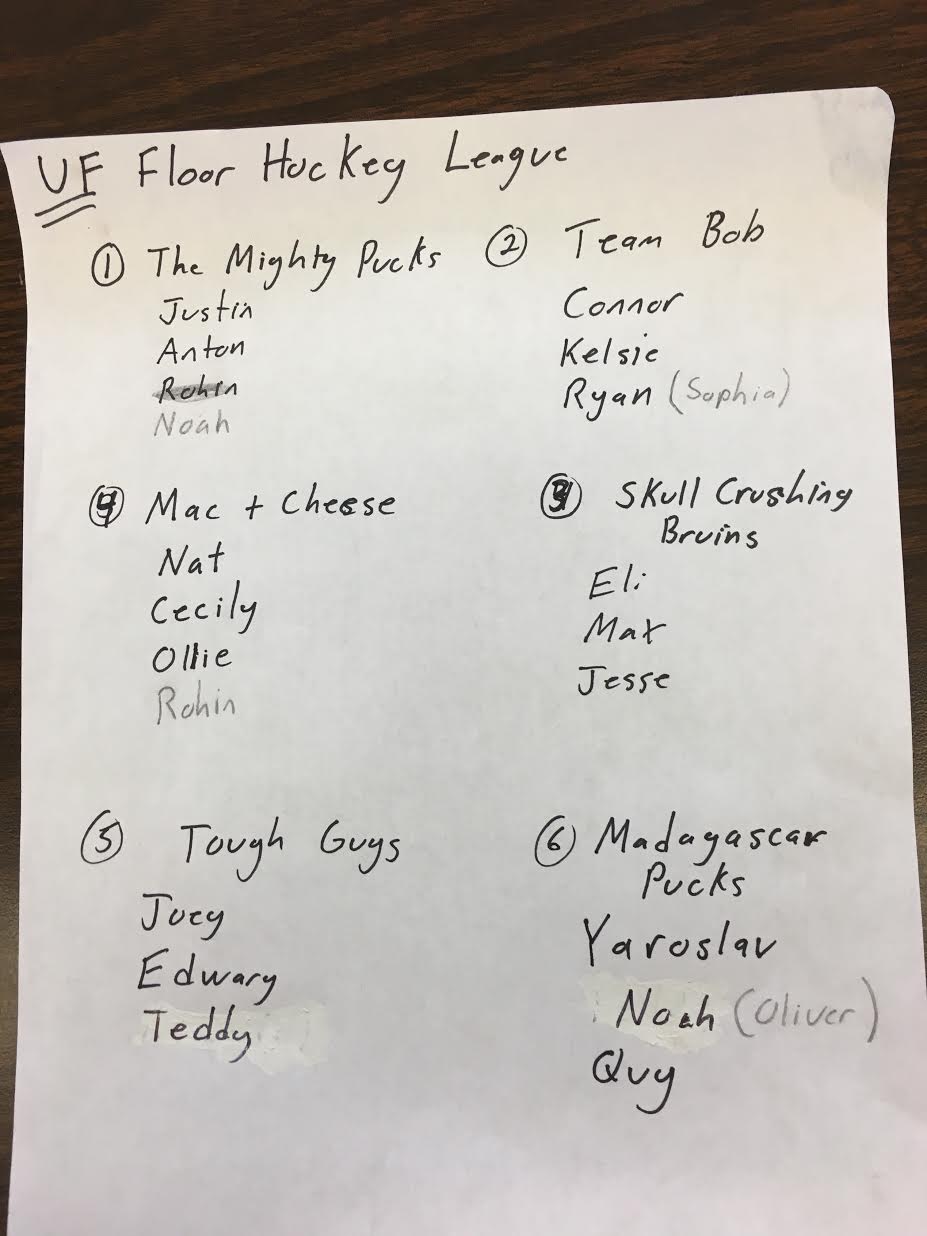 UF Floor Hockey League
① The Mighty Pucks
Justin
Anton
Rohin
Noah
② Team Bob
Connor
Kelsie
Ryan (Sophia)
④ Mac + Cheese
Nat
Cecily
Ollie
Rohin
③ Skull Crushing
Bruins
Eli
Max
Jesse
⑤ Tough Guys
Joey
Edwary
Teddy
⑥ Madagascar
Pucks
Yaroslav
Noah (Oliver)
Quy